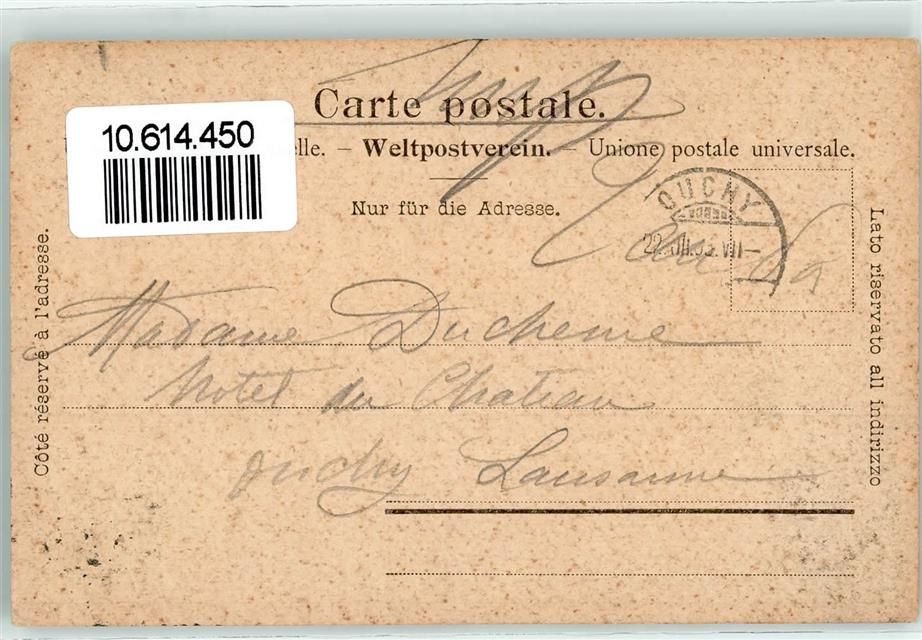 Carte postale.
10.614.450
lle. – Weltpostverein. – Unione postale universale.
Nur für die Adresse.
OUCHY
Côté réservé à l'adresse.
Lato riservato all indirizzo
Madame Duchesne
Hotel du Chateau
Ouchy Lausanne